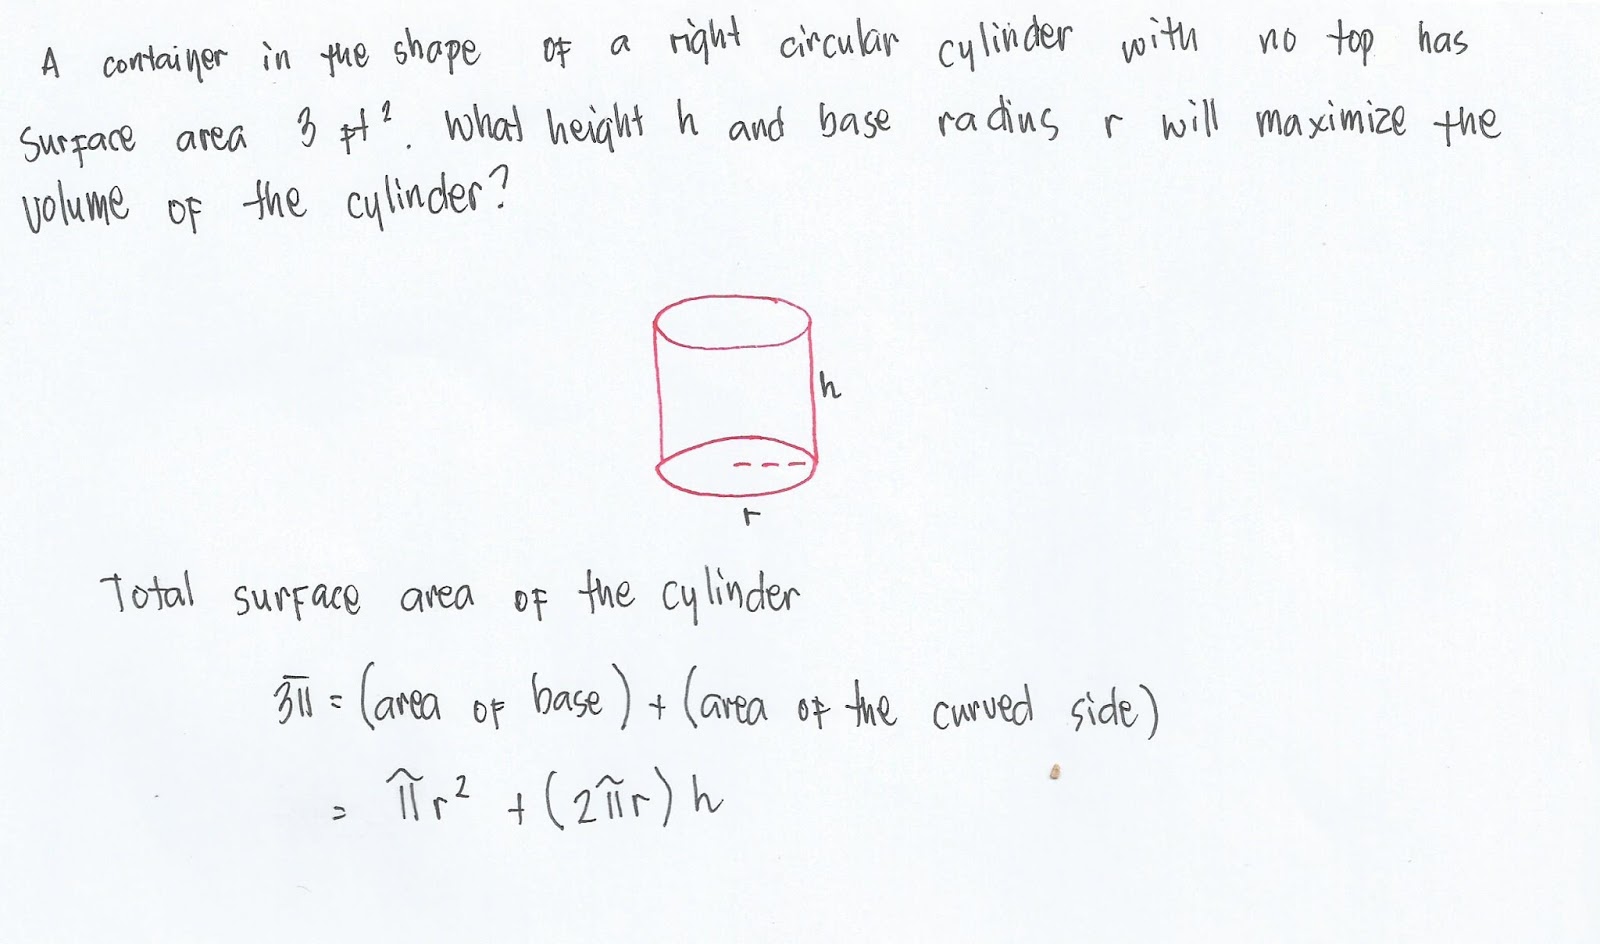 A container in the shape of a right circular cylinder with no top has
surface area 3 ft². What height h and base radius r will maximize the
volume of the cylinder?
h
r
Total surface area of the cylinder
3π = (area of base) + (area of the curved side)
= πr² + (2πr)h